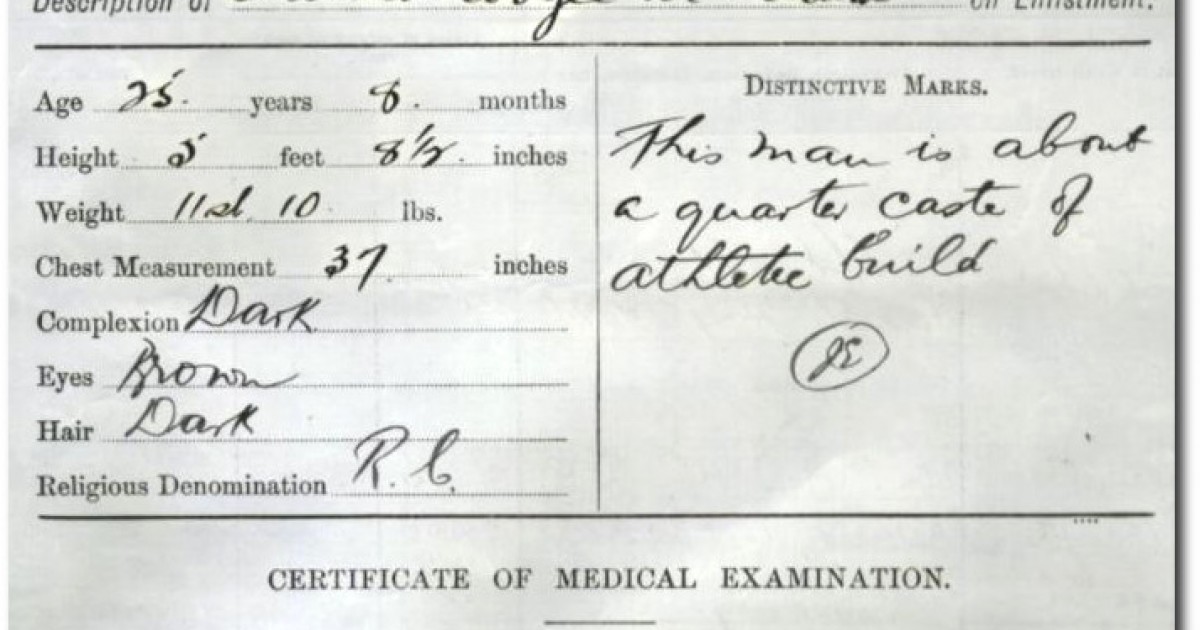 Description of on Enlistment.
Age 25. years 8. months
Height 5 feet 8 1/2. inches
Weight 11st. 10 lbs.
Chest Measurement 37. inches
Complexion Dark
Eyes Brown
Hair Dark
Religious Denomination R. C.
DISTINCTIVE MARKS.
This man is about
a quarter caste of
athletic build
CERTIFICATE OF MEDICAL EXAMINATION.